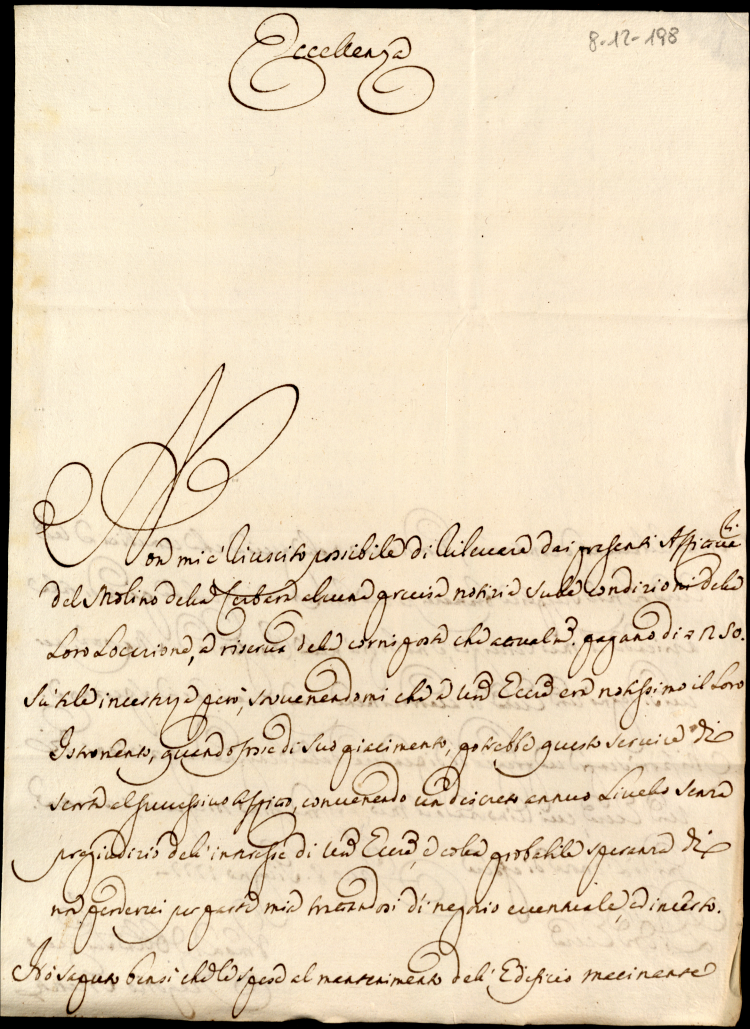 Eccellenza
8-12-198
Non mi è riuscito possibile di rilevare dai presenti Affittuali
del Molino della alcuna precisa notizia sulle condizioni della
Loro Locazione, a riserva della che attualmte. pagano di 250.
Su tale incertezza però, sovvenendomi che a Vra Eccza era notissimo il Loro
Istromento, quando fosse di Suo piacimento, potrebbe questo servire di
scorta al successivo Affitto, convenendo un discreto annuo Livello senza
pregiudizio dell'interesse di Vra Eccza, e colla probabile speranza di
non perderci per parte mia trattandosi di negozio eventuale, ed incerto.
Hò saputo bensì che le spese al mantenimento dell'Edificio macinante